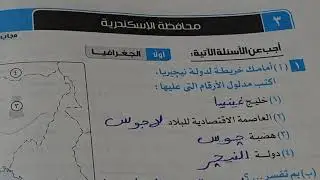 ٣
محافظة الاسكندرية
أجب عن الأسئلة الآتية:
أولًا الجغرافيا
١ (أ) أمامك خريطة لدولة نيجيريا.
اكتب مدلول الأرقام التى عليها:
(١) خليج غينيا
(٢) العاصمة الاقتصادية للبلاد لاجوس
(٣) هضبة جوس
(٤) دولة النيجر
(ب) بم تفسر ... ؟
٤
٣